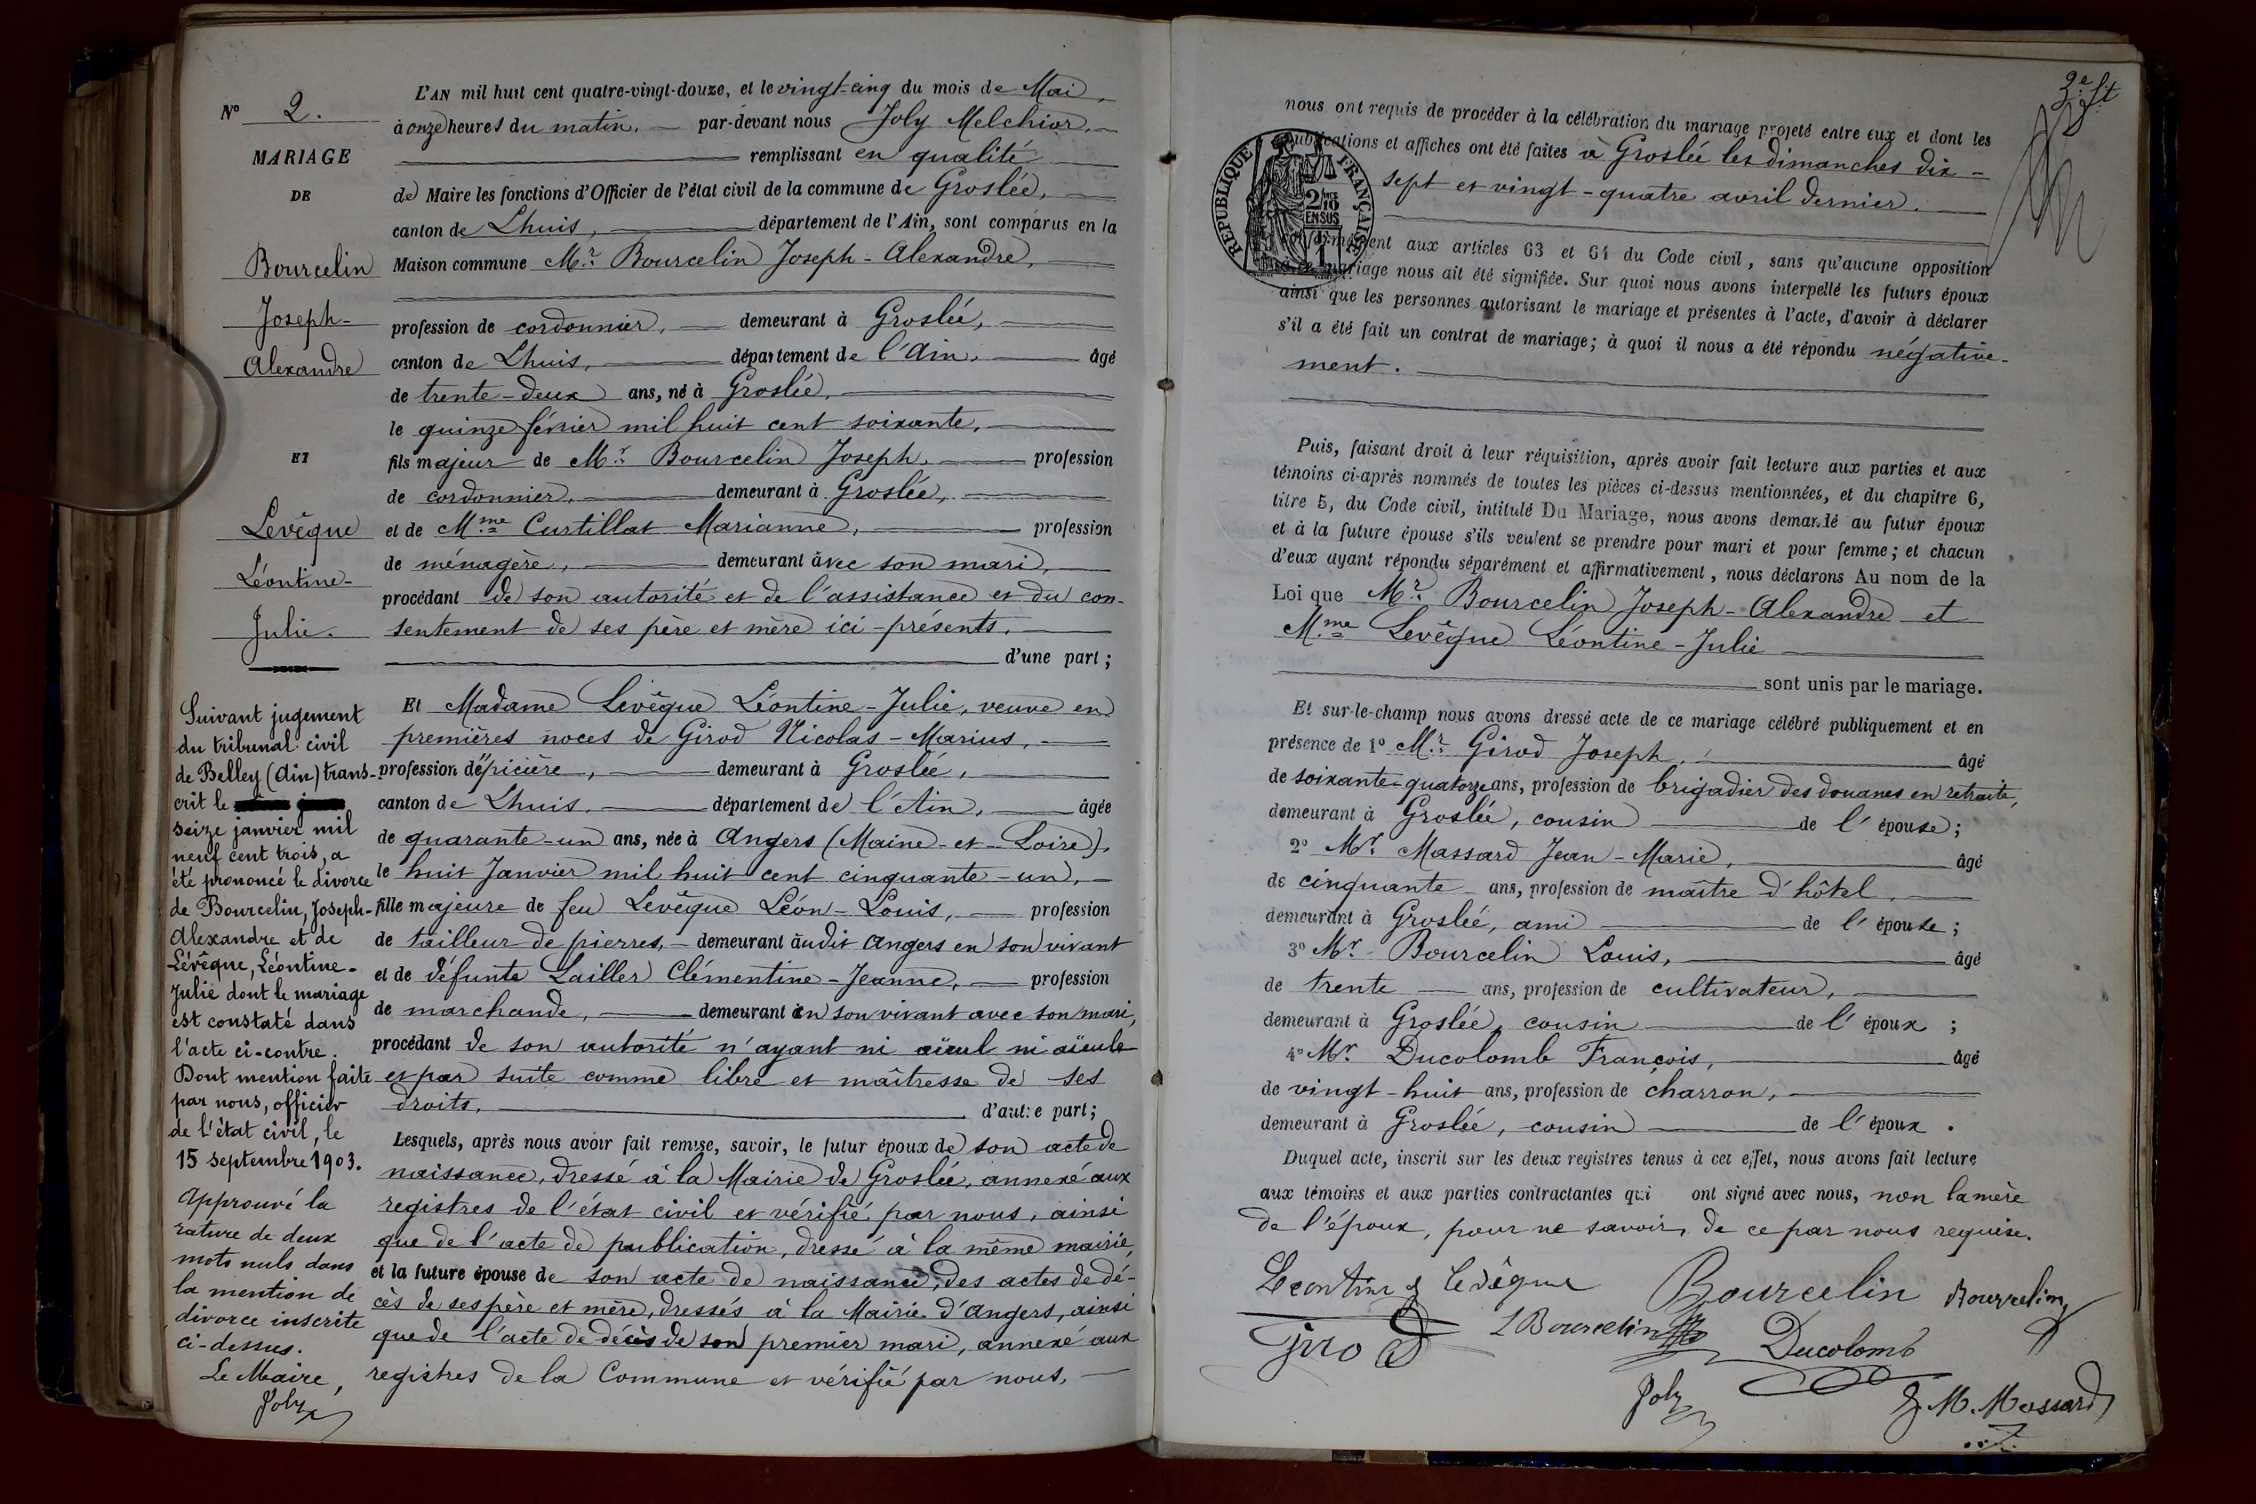 N° 2.
MARIAGE
DE
Bourcelin
Joseph-
Alexandre
ET
Levêque
Léontine-
Julie.
Suivant jugement
du tribunal civil
de Belley (Ain) trans-
crit le
seize janvier mil
neuf cent trois, a
été prononcé le divorce
de Bourcelin, Joseph-
Alexandre et de
Lévêque, Léontine-
Julie dont le mariage
est constaté dans
l'acte ci-contre.
Dont mention faite
par nous, officier
de l'état civil, le
15 septembre 1903.
Approuvé la
rature de deux
mots nuls dans
la mention de
divorce inscrite
ci-dessus.
Le Maire,
Joly
L'AN mil huit cent quatre-vingt-douze, et le vingt-cinq du mois de Mai,
à onze heures du matin, par-devant nous Joly Melchior,
remplissant en qualité
de Maire les fonctions d'Officier de l'état civil de la commune de Groslée,
canton de Lhuis, département de l'Ain, sont comparus en la
Maison commune Mr. Bourcelin Joseph-Alexandre,
profession de cordonnier, demeurant à Groslée,
canton de Lhuis, département de l'Ain, âgé
de trente-deux ans, né à Groslée,
le quinze février mil huit cent soixante,
fils majeur de Mr. Bourcelin Joseph, profession
de cordonnier, demeurant à Groslée,
et de Mme Curtillat Marianne, profession
de ménagère, demeurant avec son mari,
procédant de son autorité et de l'assistance et du con-
sentement de ses père et mère ici-présents,
d'une part;
Et Madame Levêque Léontine-Julie, veuve en
premières noces de Girod Nicolas-Marius,
profession d'épicière, demeurant à Groslée,
canton de Lhuis, département de l'Ain, âgée
de quarante-un ans, née à Angers (Maine-et-Loire),
le huit Janvier mil huit cent cinquante-un,
fille majeure de feu Levêque Léon-Louis, profession
de tailleur de pierres, demeurant audit Angers en son vivant
et de défunte Lailler Clémentine-Jeanne, profession
de marchande, demeurant en son vivant avec son mari,
procédant de son autorité n'ayant ni aïeul ni aïeule
et par suite comme libre et maîtresse de ses
droits, d'autre part;
Lesquels, après nous avoir fait remise, savoir, le futur époux de son acte de
naissance, dressé à la Mairie de Groslée, annexé aux
registres de l'état civil et vérifié par nous, ainsi
que de l'acte de publication, dressé à la même mairie,
et la future épouse de son acte de naissance, des actes de dé-
cès de ses père et mère, dressés à la Mairie d'Angers, ainsi
que de l'acte de décès de son premier mari, annexé aux
registres de la Commune et vérifié par nous,
2e ft
nous ont requis de procéder à la célébration du mariage projeté entre eux et dont les
publications et affiches ont été faites à Groslée les dimanches dix-
sept et vingt-quatre avril dernier.
RÉPUBLIQUE FRANÇAISE
2/10
EN SUS
1
conformément aux articles 63 et 64 du Code civil, sans qu'aucune opposition
audit mariage nous ait été signifiée. Sur quoi nous avons interpellé les futurs époux
ainsi que les personnes autorisant le mariage et présentes à l'acte, d'avoir à déclarer
s'il a été fait un contrat de mariage; à quoi il nous a été répondu négative-
ment.
Puis, faisant droit à leur réquisition, après avoir fait lecture aux parties et aux
témoins ci-après nommés de toutes les pièces ci-dessus mentionnées, et du chapitre 6,
titre 5, du Code civil, intitulé Du Mariage, nous avons demandé au futur époux
et à la future épouse s'ils veulent se prendre pour mari et pour femme; et chacun
d'eux ayant répondu séparément et affirmativement, nous déclarons Au nom de la
Loi que Mr. Bourcelin Joseph-Alexandre et
Mme Levêque Léontine-Julie
sont unis par le mariage.
Et sur-le-champ nous avons dressé acte de ce mariage célébré publiquement et en
présence de 1° Mr. Girod Joseph, âgé
de soixante-quatorze ans, profession de brigadier des douanes en retraite,
demeurant à Groslée, cousin de l'épouse;
2° Mr. Massard Jean-Marie, âgé
de cinquante ans, profession de maître d'hôtel,
demeurant à Groslée, ami de l'épouse;
3° Mr. Bourcelin Louis, âgé
de trente ans, profession de cultivateur,
demeurant à Groslée, cousin de l'époux;
4° Mr. Ducolomb François, âgé
de vingt-huit ans, profession de charron,
demeurant à Groslée, cousin de l'époux.
Duquel acte, inscrit sur les deux registres tenus à cet effet, nous avons fait lecture
aux témoins et aux parties contractantes qui ont signé avec nous, non la mère
de l'époux, pour ne savoir, de ce par nous requise.
Leontine Levêque Bourcelin Bourcelin
Girod L Bourcelin Ducolomb
Joly J. M. Massard